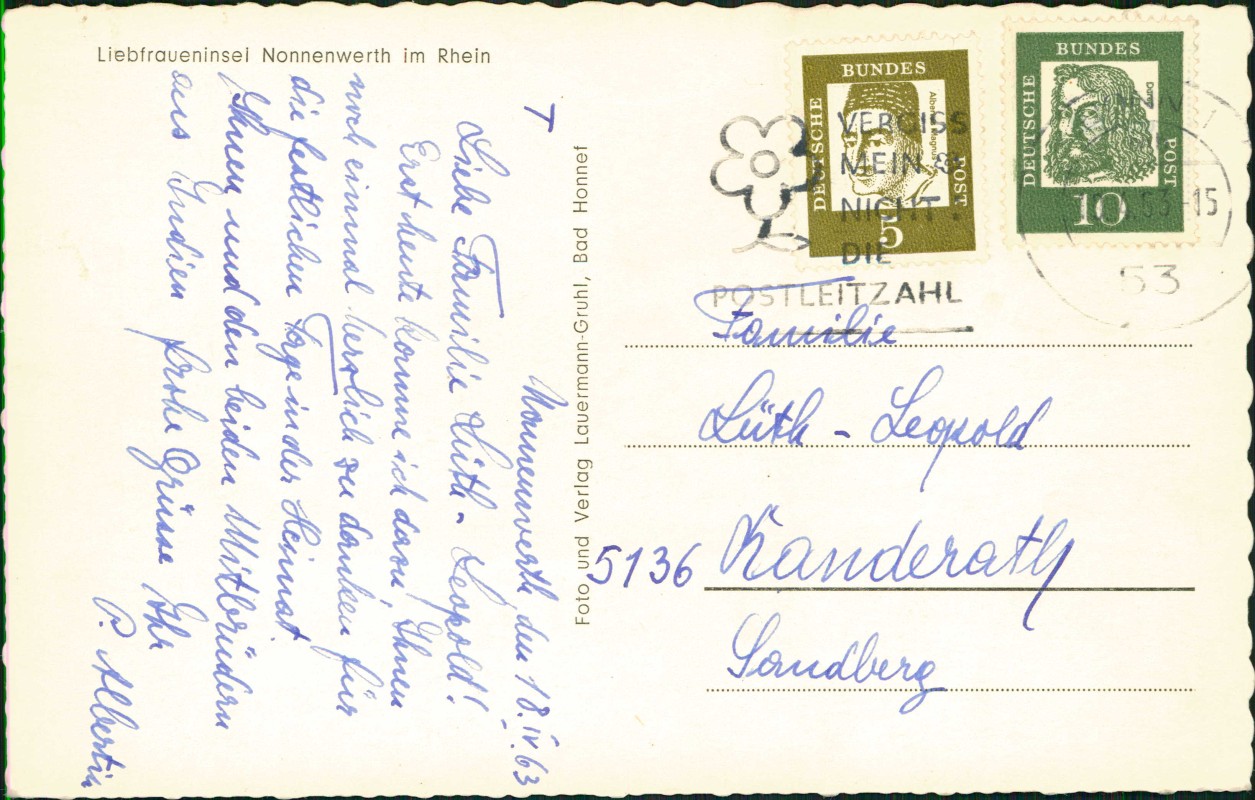 Liebfraueninsel Nonnenwerth im Rhein
†
Nonnenwerth den 18. IV. 63
Liebe Familie Lüth - Leopold!
Erst heute komme ich dazu Ihnen
noch einmal herzlich zu danken für
die festlichen Tage in der Heimat.
Ihnen und den beiden Mitbrüdern
aus Indien frohe Grüsse Ihr
P. Albertin
Foto und Verlag Lauermann-Gruhl, Bad Honnef
DEUTSCHE
BUNDES
POST
Albertus Magnus
5
DEUTSCHE
BUNDES
POST
Dürer
10
VERGISS
MEIN
NICHT
DIE
POSTLEITZAHL
63-15
53
Familie
Lüth - Leopold
5136 Randerath
Sandberg